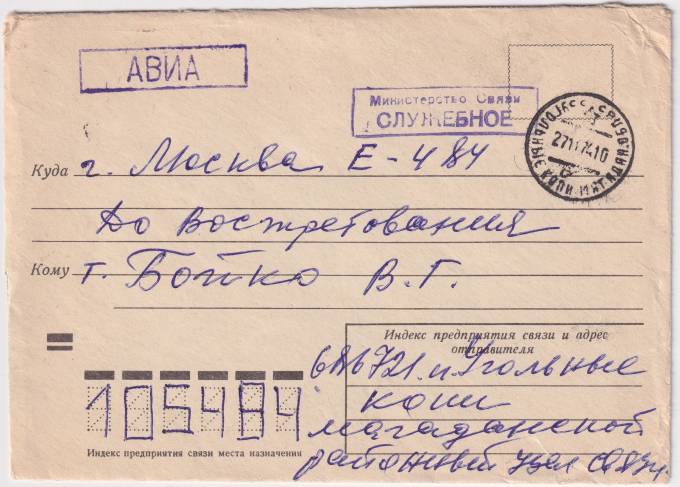 АВИА
Министерство Связи
СЛУЖЕБНОЕ
Куда г. Москва Е-484
До Востребования
Кому т. Бойко В. Г.
Индекс предприятия связи и адрес
отправителя
686721. п. Угольные
копи
магаданской
районный узел связи.
105484
Индекс предприятия связи места назначения